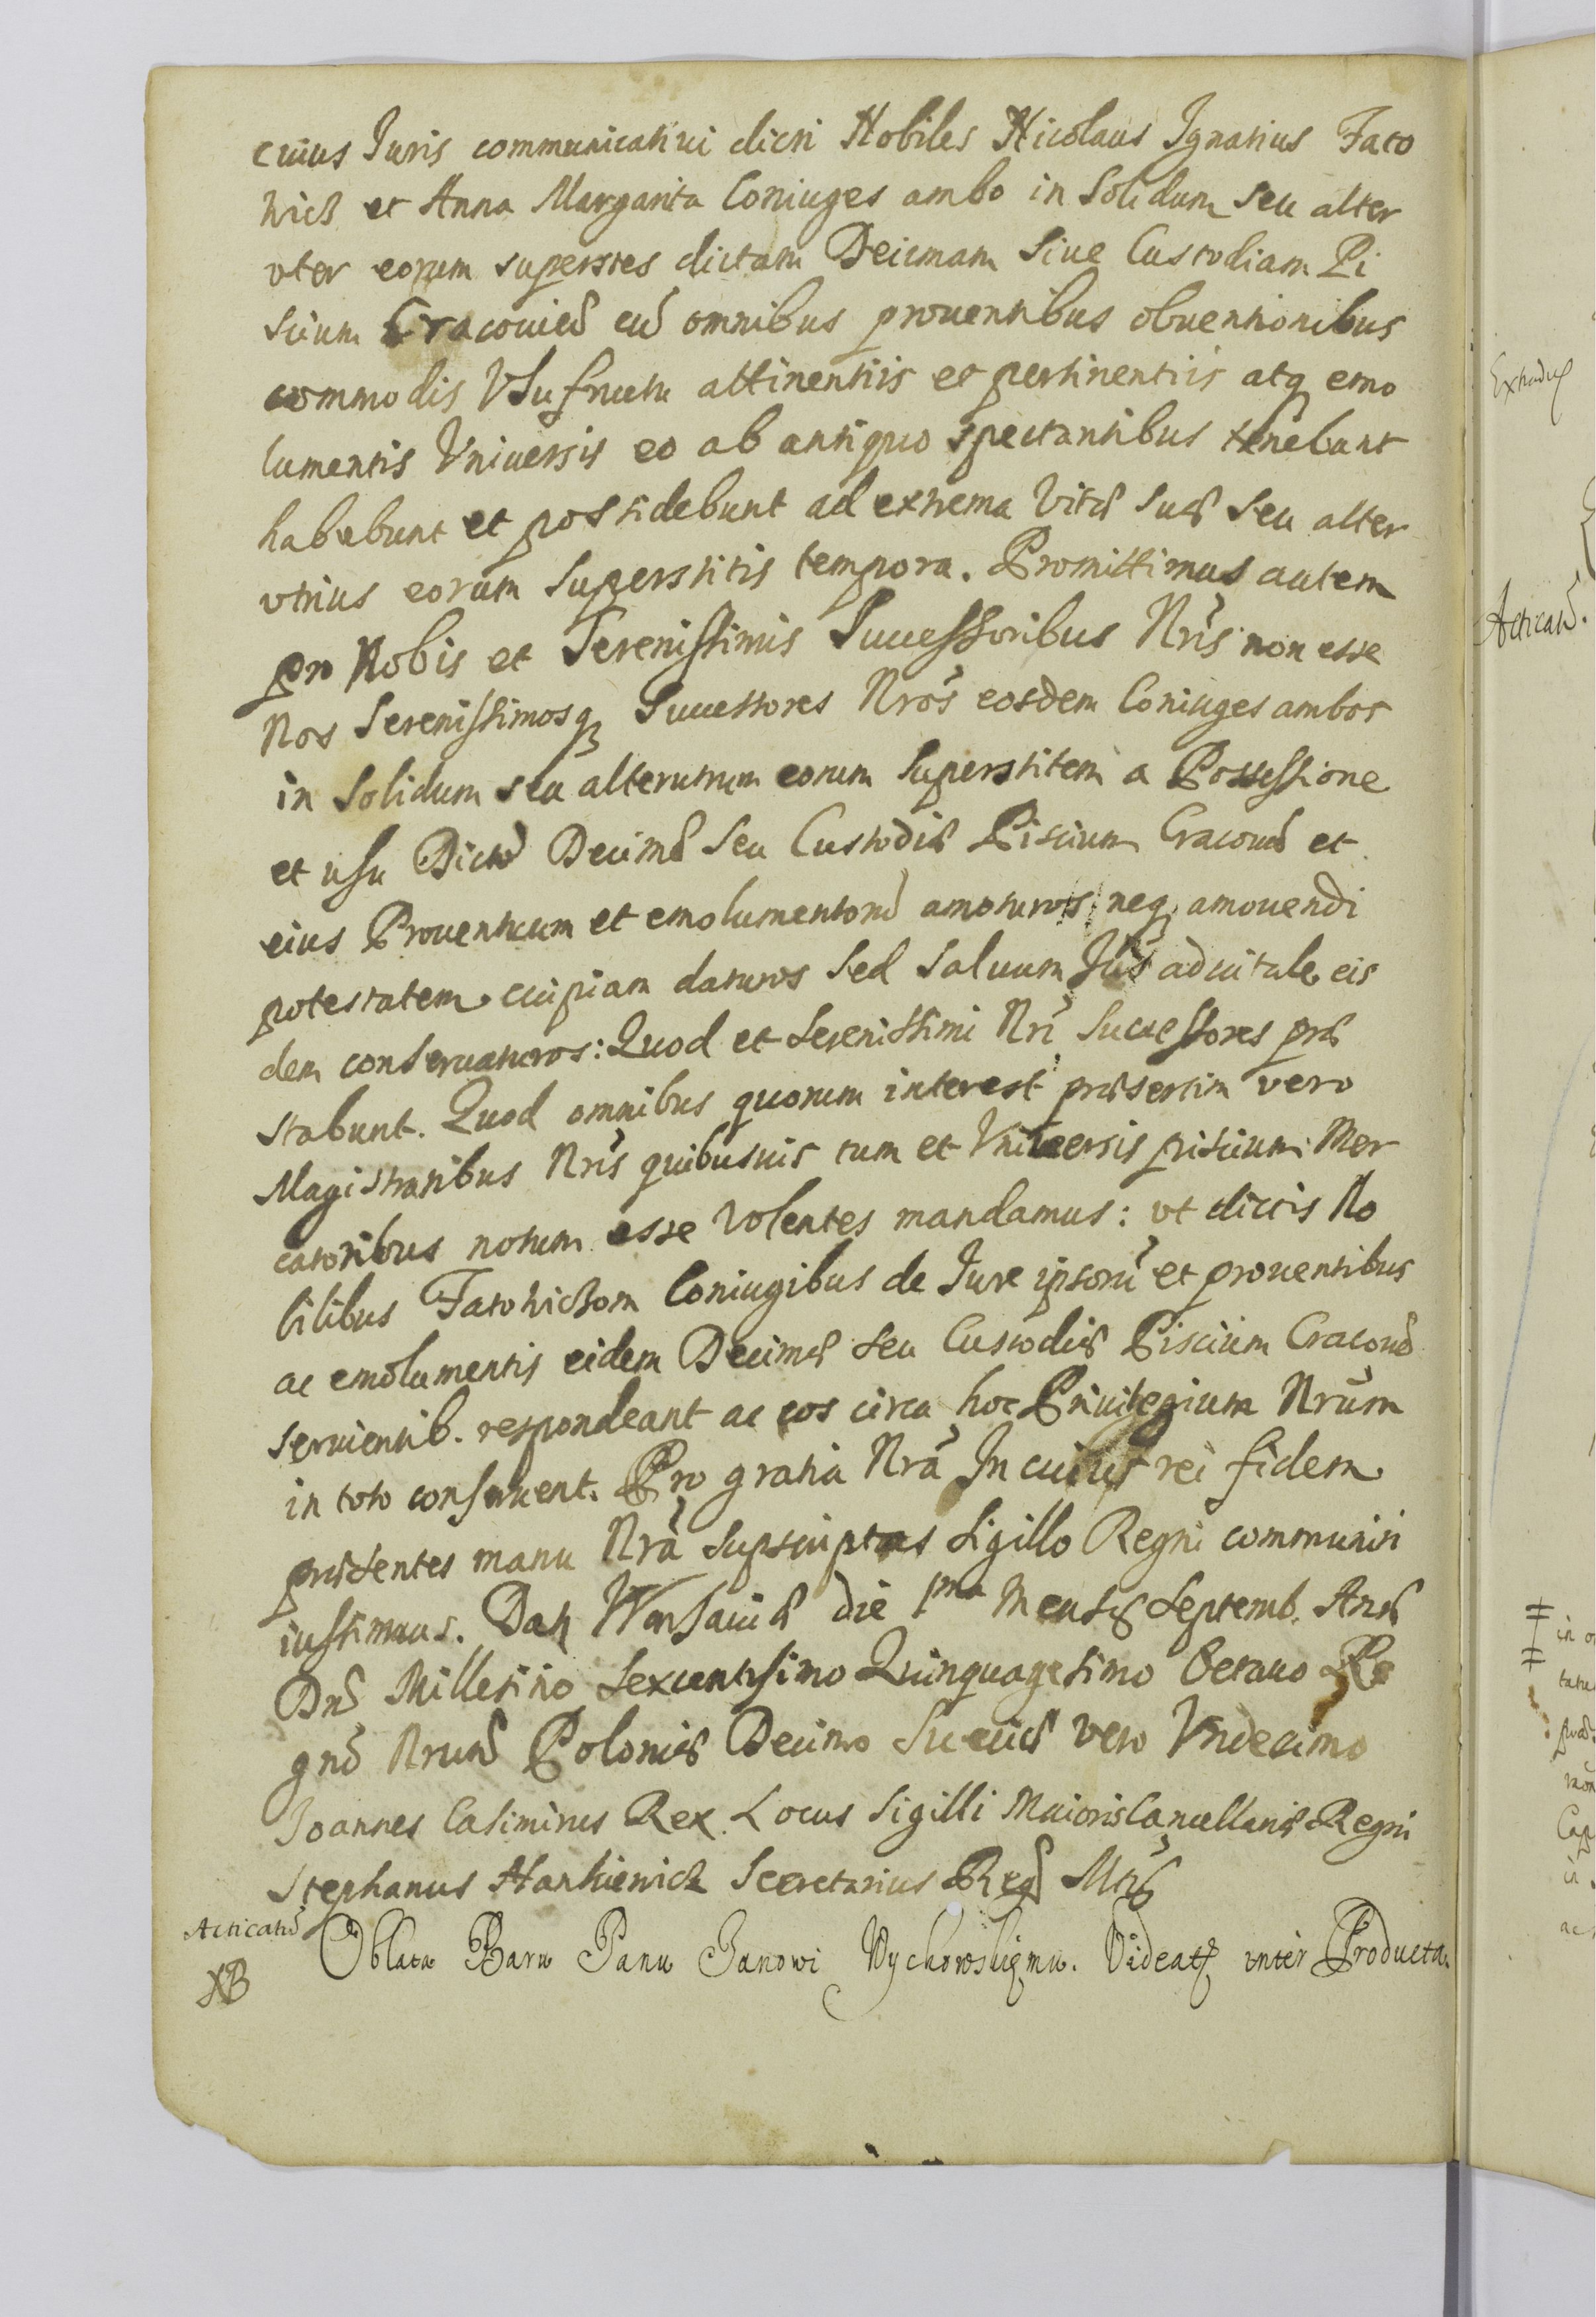 cuius Juris communicativi dicti Nobiles Nicolaus Ignatius Fato
wicz et Anna Margarita Coniuges ambo in Solidum Seu alter
uter eorum superstes dictam Deicmam Siue Custodiam Pi
scium Cracouień cū omnibus prouentibus obuentionibus
commodis Vsufructu attinentiis et pertinentiis atq emo
lumentis Vniuersis eo ab antiquo spectantibus tenebunt
habebunt et possidebunt ad extrema Vitæ Suæ Seu alter
utrius eorum Superstitis tempora. Promittimus autem
pro Nobis et Serenissimis Successoribus Nrīs non esse
Nos Serenissimosq Successores Nrōs eosdem Coniuges ambos
in Solidum seu alterutrum eorum Superstitem a Possessione
et usu Dictæ Decimæ Seu Custodiæ Piscium Cracouń et
eius Prouentuum et emolumentorū amoturos neq amouendi
potestatem cuipiam daturos Sed Saluum Jus aduitale eis
dem conseruaturos: Quod et Serenissimi Nrī Successores præ
stabunt. Quod omnibus quorum interest præsertim vero
Magistratibus Nrīs quibusuis tum et Vniuersis piscium Mer
catoribus notum esse Volentes mandamus: ut dictis No
bilibus Fatowiczom Coniugibus de Jure ipsorū et prouentibus
ac emolumentis eidem Decimæ seu Custodiæ Piscium Cracouń
seruientib. respondeant ac eos circa hoc Priuilegium Nrūm
in toto conseruent. Pro gratia Nrā In cuius rei fidem
præsentes manu Nrā Supscriptas Sigillo Regni communiri
iussimus. Dat Warsauiæ die 1ma Mensis Septemb. Anō
Dnī Millesimo Sexcentesimo Quinquagesimo Octauo Re
gnō Nrorū Poloniæ Decimo Sueciæ vero Vndecimo
Joannes Casimirus Rex. Locus Sigilli Maioris Cancellariæ Regni
Stephanus Hankiewicz Secretarius Reg Mtīs
Acticatń
Oblata Panu Janowi Wychowskiemu. Videat inter Producta.
XB
Acticatń.